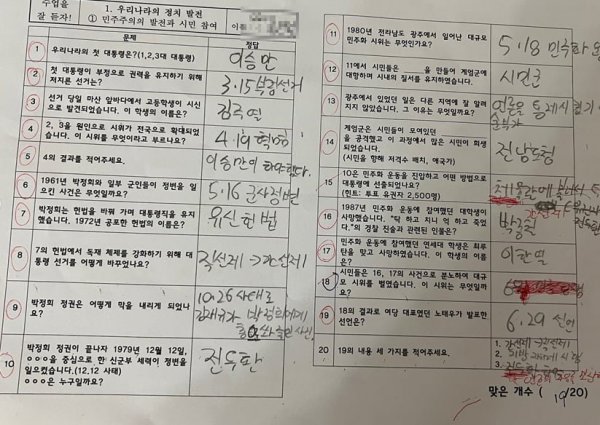 수업을
잘 듣자!
1. 우리나라의 정치 발전
① 민주주의의 발전과 시민 참여
이름
문제
정답
1
우리나라의 첫 대통령은?(1,2,3대 대통령)
이승만
2
첫 대통령이 부정으로 권력을 유지하기 위해
저지른 선거는?
3.15 부정선거
3
선거 당일 마산 앞바다에서 고등학생이 시신
으로 발견되었습니다. 이 학생의 이름은?
김주열
4
2, 3을 원인으로 시위가 전국으로 확대되었
습니다. 이 시위를 무엇이라고 부르나요?
4.19 혁명
5
4의 결과를 적어주세요.
이승만이 하야했다.
6
1961년 박정희와 일부 군인들이 정변을 일
으킨 사건은 무엇인가요?
5.16 군사정변
7
박정희는 헌법을 바꿔 가며 대통령직을 유지
했습니다. 1972년 공포한 헌법의 이름은?
유신헌법
8
7의 헌법에서 독재 체제를 강화하기 위해 대
통령 선거를 어떻게 바꾸었나요?
직선제→간선제
9
박정희 정권은 어떻게 막을 내리게 되었나
요?
10.26 사태로
김재규가 박정희에게
10
박정희 정권이 끝나자 1979년 12월 12일,
○○○을 중심으로 한 신군부 세력이 정변을
일으켰습니다.(12.12 사태)
○○○은 누구일까요?
전두환
11
1980년 전라남도 광주에서 일어난 대규모
민주화 시위는 무엇인가요?
5.18 민주화
12
11에서 시민들은 ______을 만들어 계엄군에
대항하며 시내의 질서를 유지하였습니다.
시민군
13
광주에서 있었던 일은 다른 지역에 잘 알려
지지 않았습니다. 그 이유는 무엇일까요?
언론을 통제시켰기
14
계엄군은 시민들이 모여있던 ______
을 공격했고 이 과정에서 많은 시민이 희생
되었습니다.
(시민을 향해 저격수 배치, 애국가)
전남도청
15
10은 민주화 운동을 진압하고 어떤 방법으로
대통령에 선출되었나요?
(힌트: 투표 유권자 2,500명)
16
1987년 민주화 운동에 참여했던 대학생이
사망했습니다. "탁 하고 치니 억 하고 죽었
다."의 경찰 진술과 관련된 인물은?
박종철
17
민주화 운동에 참여했던 연세대 학생은 최루
탄을 맞고 사망하였습니다. 이 학생의 이름
은?
이한열
18
시민들은 16, 17의 사건으로 분노하여 대규
모 시위를 벌였습니다. 이 시위는 무엇일까
요?
19
18의 결과로 여당 대표였던 노태우가 발표한
선언은?
6.29 선언
20
19의 내용 세 가지를 적어주세요.
1. 간선제→직선제
2. 지방자치제 시행
3.
맞은 개수 ( 19/20)